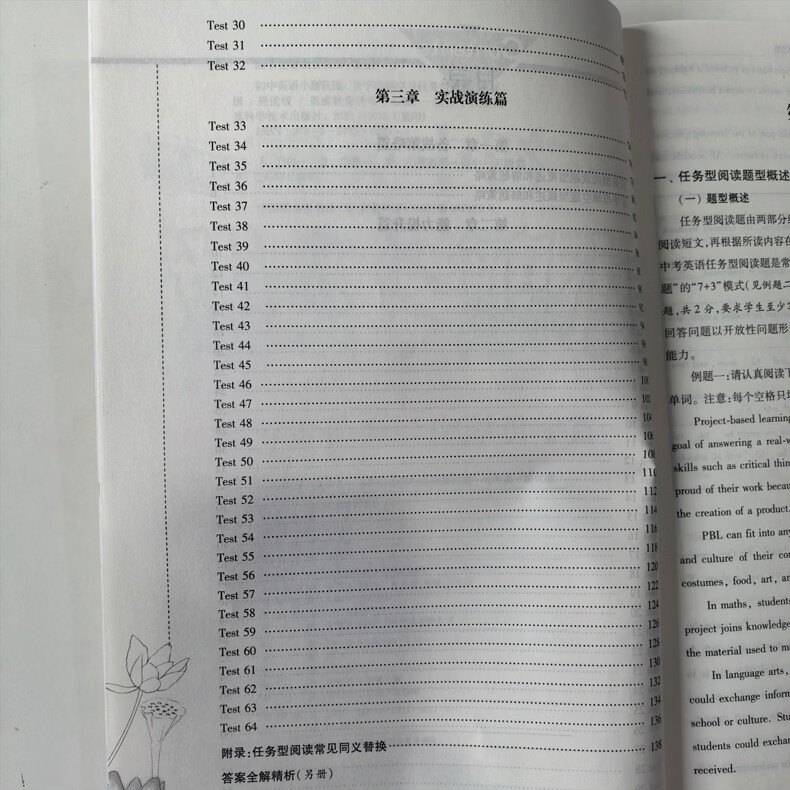 Test 30
Test 31
Test 32
第三章 实战演练篇
Test 33
Test 34
Test 35
Test 36
Test 37
Test 38
Test 39
Test 40
Test 41
Test 42
Test 43
Test 44
Test 45
Test 46 100
Test 47 102
Test 48 104
Test 49 106
Test 50 108
Test 51 110
Test 52 112
Test 53 114
Test 54 116
Test 55 118
Test 56 120
Test 57 122
Test 58 124
Test 59 126
Test 60 128
Test 61 130
Test 62 132
Test 63 134
Test 64 136
附录:任务型阅读常见同义替换 138
答案全解精析(另册)
一、任务型阅读题型概述
(一)题型概述
任务型阅读题由两部分
阅读短文,再根据所读内容在
中考英语任务型阅读题是常
题”的“7+3”模式(见例题二
题,共2分,要求学生至少
回答问题以开放性问题形
能力。
例题一:请认真阅读下
单词。注意:每个空格只
Project-based learning
goal of answering a real-w
skills such as critical thin
proud of their work becau
the creation of a product.
PBL can fit into any
and culture of their co
costumes, food, art, a
In maths, students
project joins knowledge
the material used to m
In language arts,
could exchange inform
school or culture. Stu
students could excha
received.